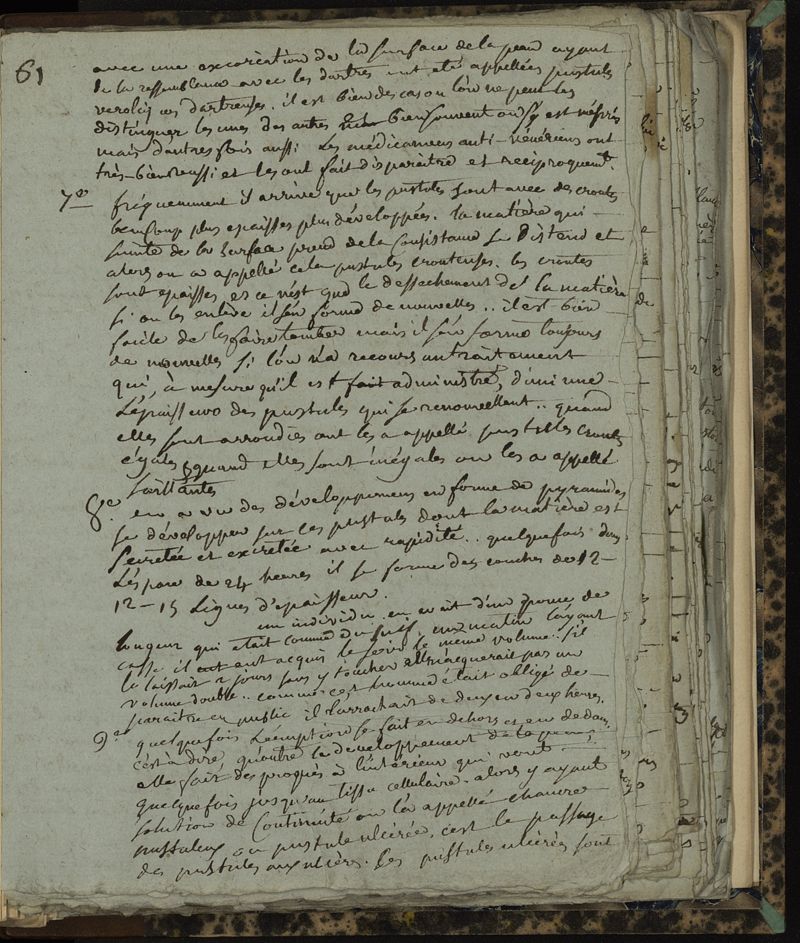 61
avec une excoriation de la surface de la peau ayant
de la ressemblance avec les dartres ont eté appellées pustules
veroliques dartreuses. il est bien des cas ou l'on ne peut les
distinguer les unes des autres bien souvent on s'y est mépris
mais d'autres fois aussi les médicamens anti-vénériens ont
très-bien reussi et les ont fait disparaitre et reciproquemt.
7e fréquemment il arrive que les pustules sont avec des croutes
beaucoup plus epaisses plus développées. la matière qui
suinte de la surface prend de la consistance se distend et
alors on a appellé cela pustules crouteuses. les croutes
sont epaisses, et ce n'est que le dessechement de la matière
si on les enlève il s'en forme de nouvelles.. il est bien
facile de les faire tomber mais il s'en forme toujours
de nouvelles si l'on n'a recours au traitement
qui, à mesure qu'il est fait administré, diminue
l'épaisseur des pustules qui se renouvellent.. quand
elles sont arrondies on les a appellé pustules croutes
égales, quand elles sont inégales on les a appellé
saillantes
8e on a vu des développemens en forme de pyramides
se développer sur les pustules dont la matière est
secretée et excretée avec rapidité.. quelquefois dans
l'éspace de 24 heures il se forme des couches de 12-
12-15 lignes d'epaisseur.
un individu en avait d'un pouce de
longeur qui etait comme du suif, un matin l'ayant
cassé il eut acquis le soir le même volume.. s'il
la laissait 2 jours sans y toucher elle acquerait pas un
volume double.. comme cet homme était obligé de
paraitre en public il l'arrachait de deux en deux heures.
9e quelquefois l'eruption se fait en dehors et en dedans,
c'est a dire, qu'outre le developpement de la peau,
elle fait des progrès à l'intérieur qui vont
quelquefois jusqu'au tissu cellulaire. alors y ayant
solution de continuité on l'a appellé chancre
pustuleux ou pustule ulcerée. c'est le passage
des pustules aux ulcères. les pustules ulcerées sont